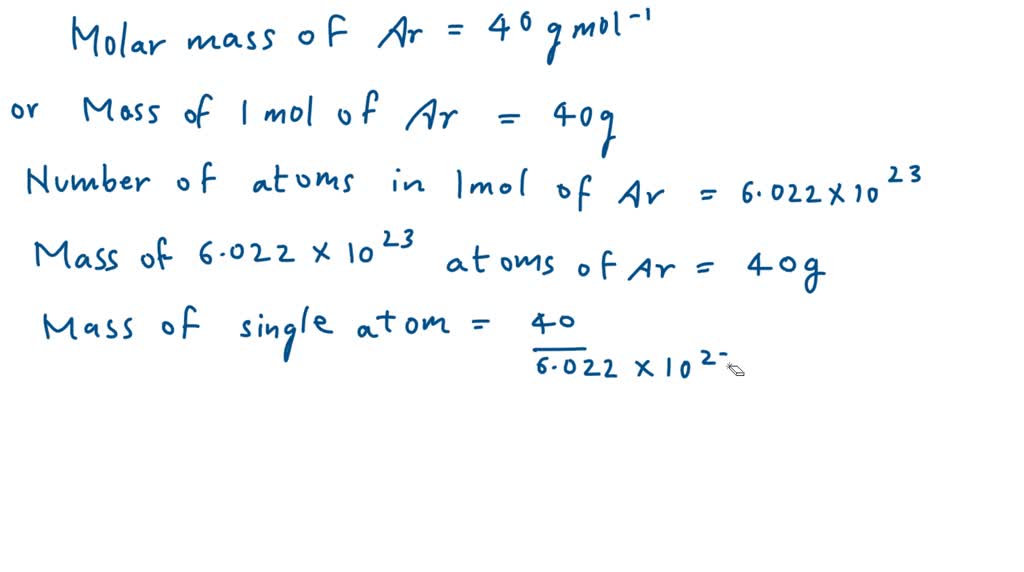 Molar mass of Ar = 40 g mol⁻¹
or Mass of 1 mol of Ar = 40g
Number of atoms in 1mol of Ar = 6.022 × 10²³
Mass of 6.022 × 10²³ atoms of Ar = 40g
Mass of single atom = 40
6.022 × 10²